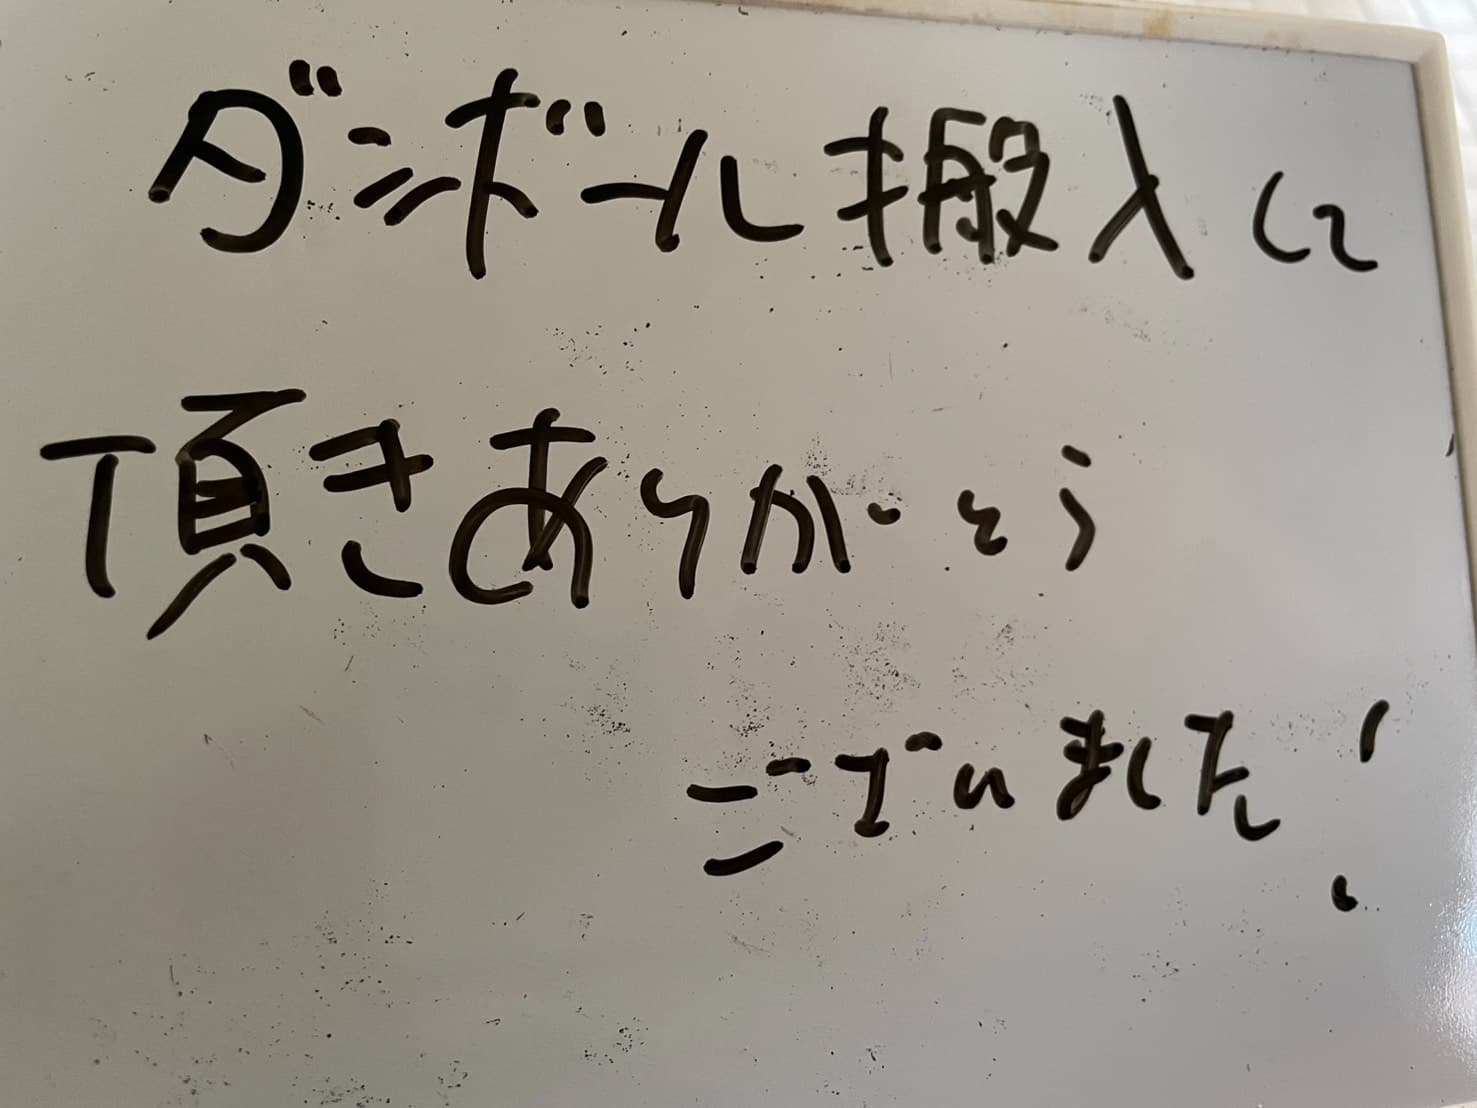 ダンボール搬入して
頂きありがとう
ございました!